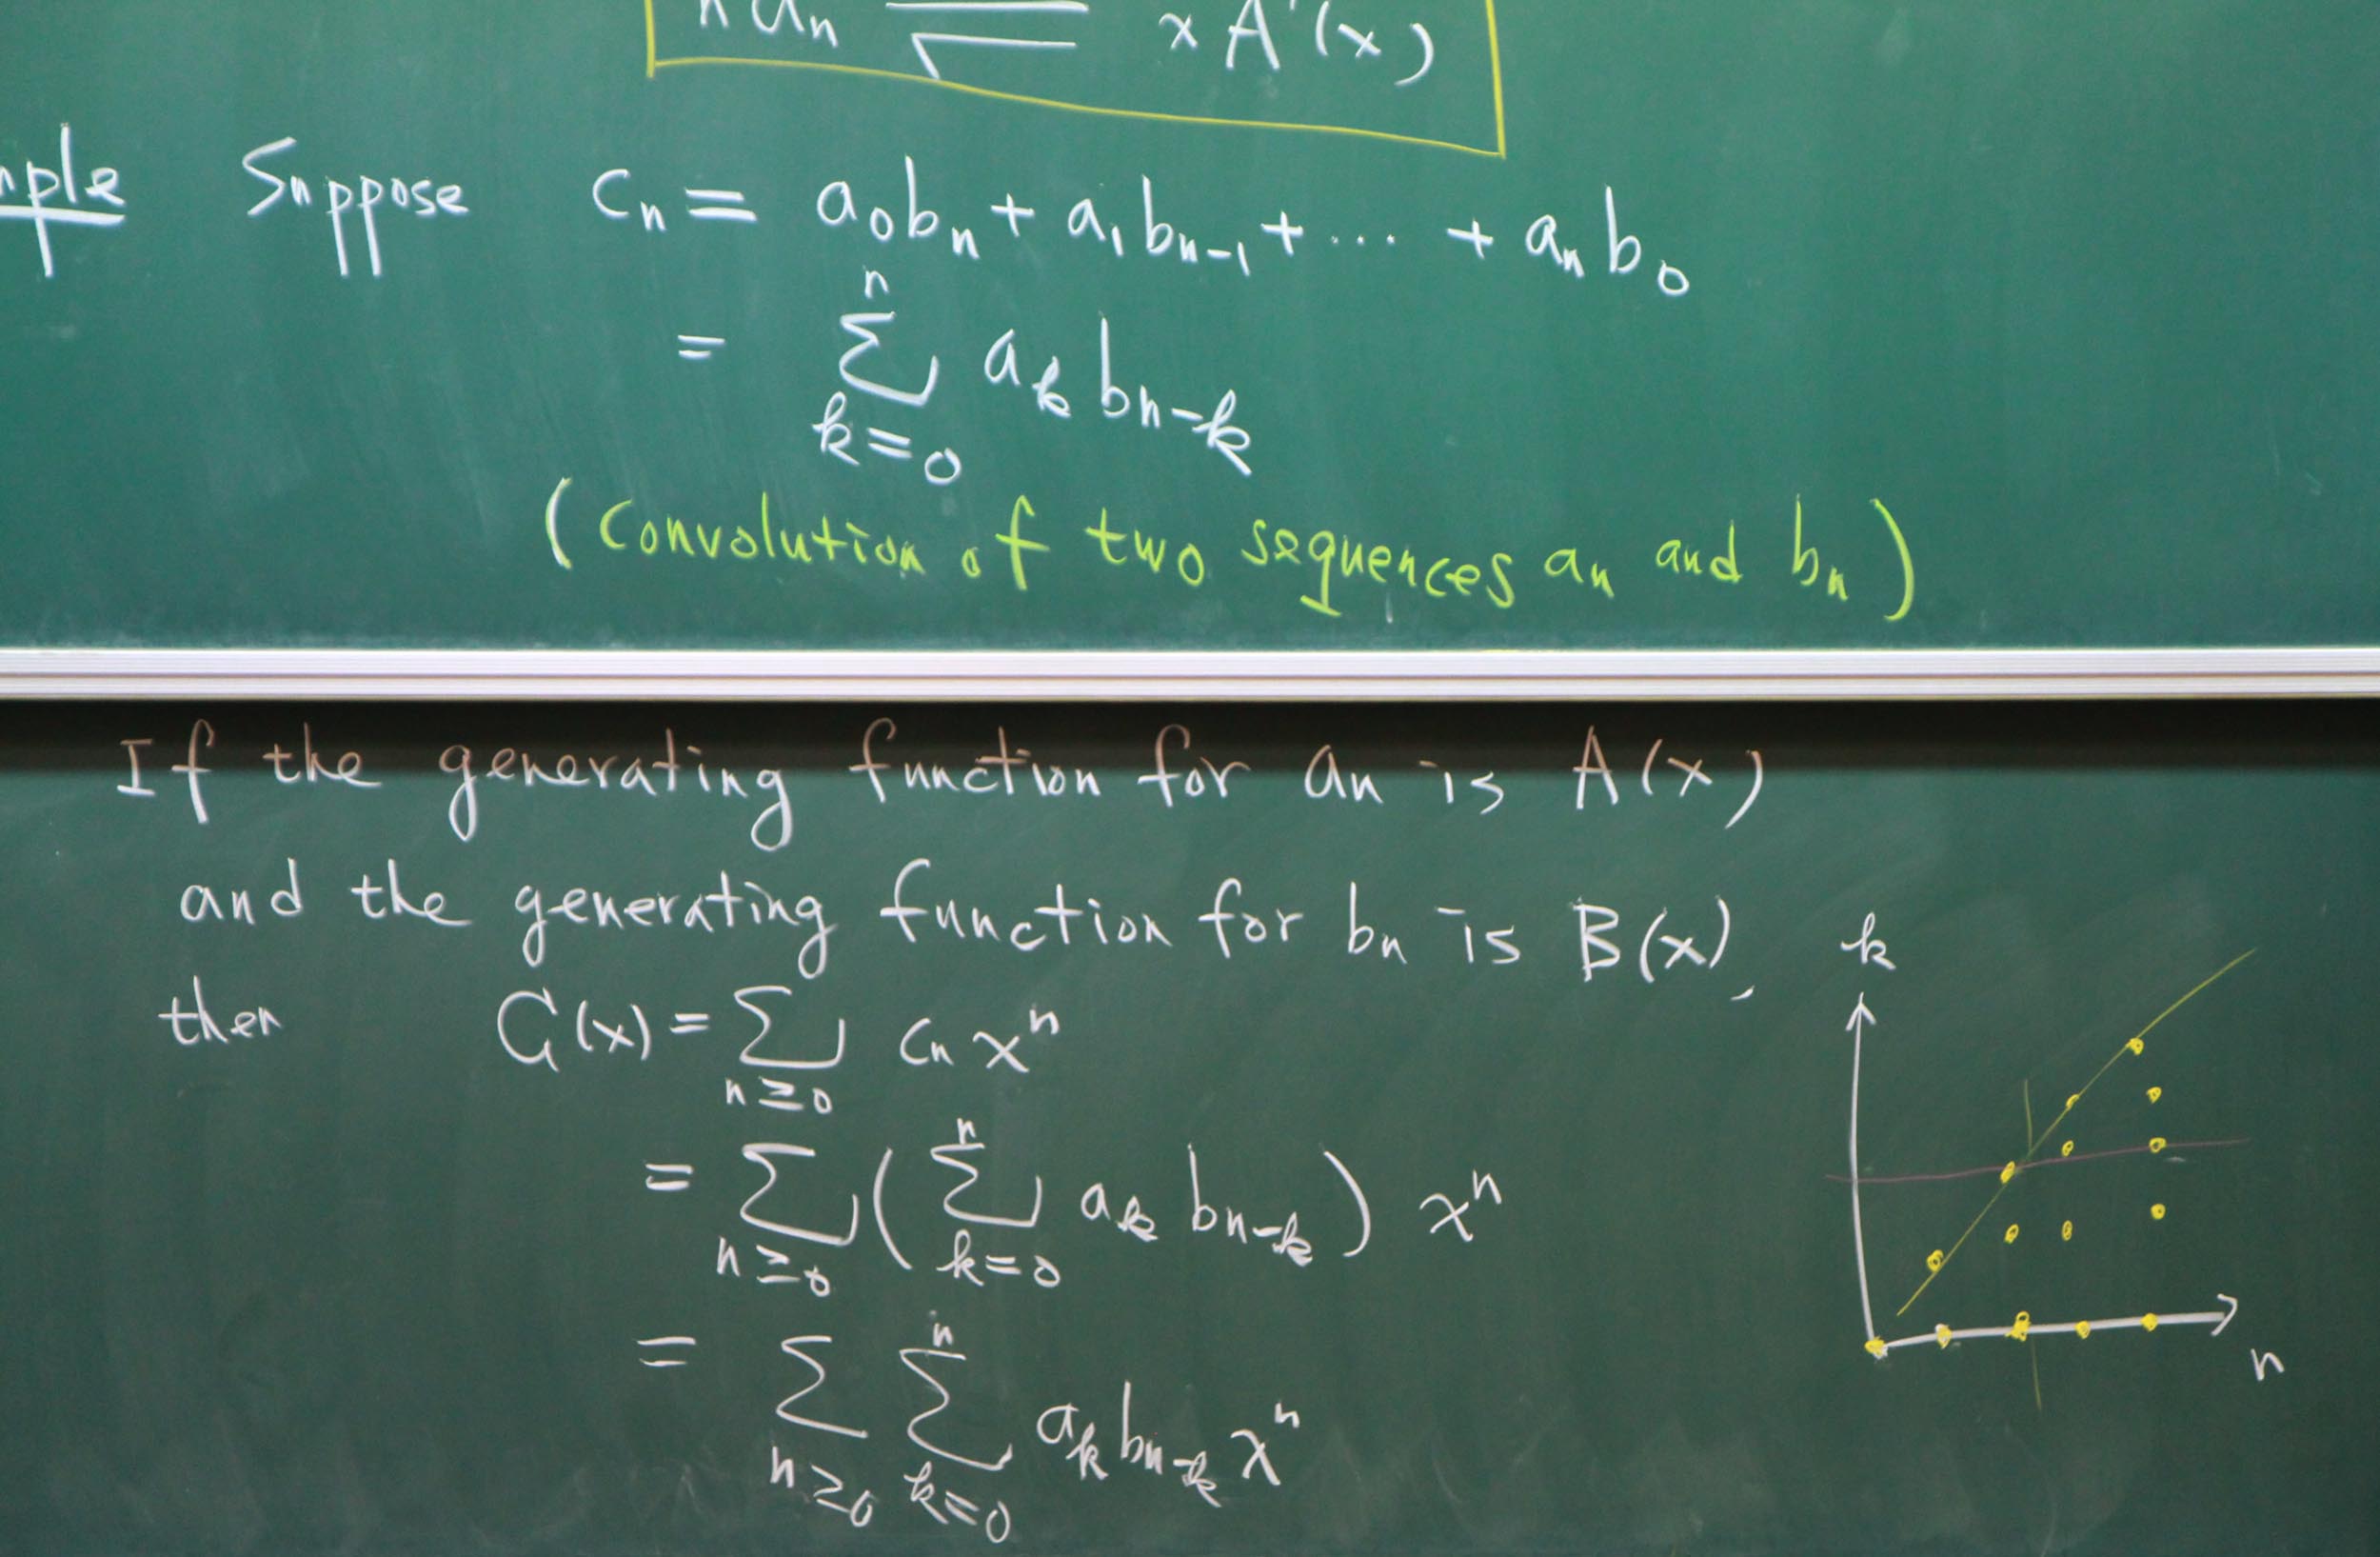 n aₙ ⇌ x A'(x)
mple Suppose cₙ = a₀bₙ + a₁bₙ₋₁ + ... + aₙb₀
= ∑ₖ₌₀ⁿ aₖ bₙ₋ₖ
(Convolution of two sequences aₙ and bₙ)
If the generating function for aₙ is A(x)
and the generating function for bₙ is B(x),
then G(x) = ∑_{n≥0} cₙ xⁿ
= ∑_{n≥0} (∑ₖ₌₀ⁿ aₖ bₙ₋ₖ) xⁿ
= ∑_{n≥0} ∑ₖ₌₀ⁿ aₖ bₙ₋ₖ xⁿ
k
n